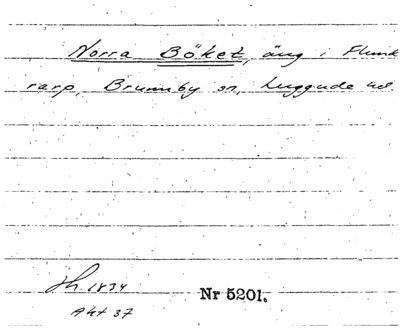 Norra Böket, äng i Flunk
rarp, Brunnby sn, Luggude hd.
Jh. 1834
Akt 37
Nr 5201.